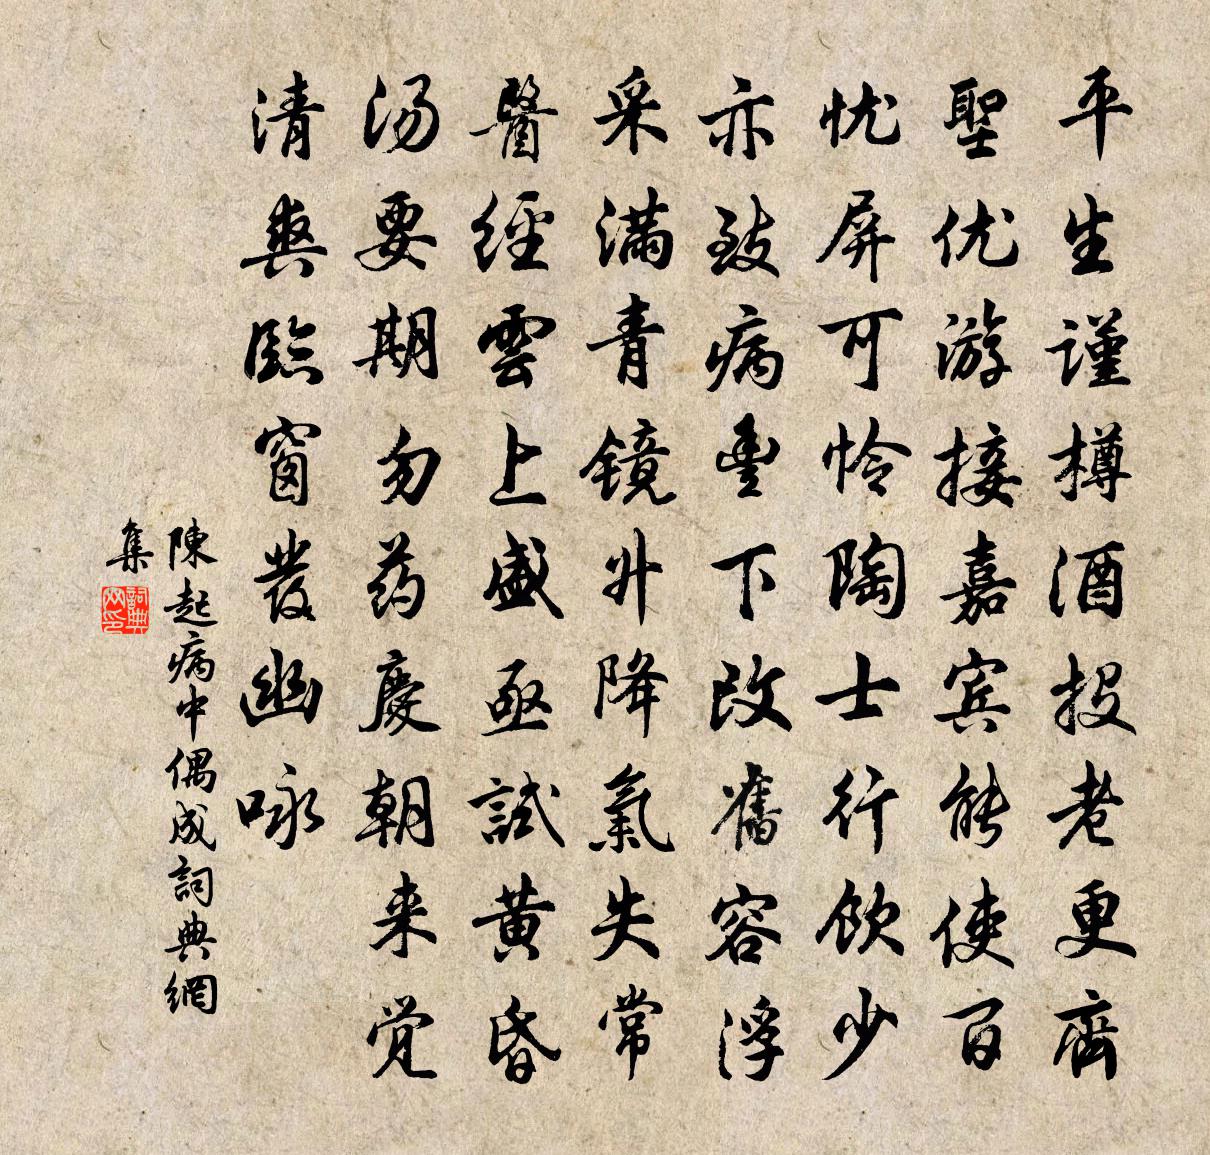 平生謹樽酒投老更齊
聖优游接嘉宾能使百
忧屏可怜陶士行饮少
亦致病豊下改舊容浮
采满青镜升降氣失常
醫經雲上盛亟試黄昏
汤要期勿药慶朝来觉
清爽臨窗發幽咏
陳起病中偶成詞典網
集
詞典
网印